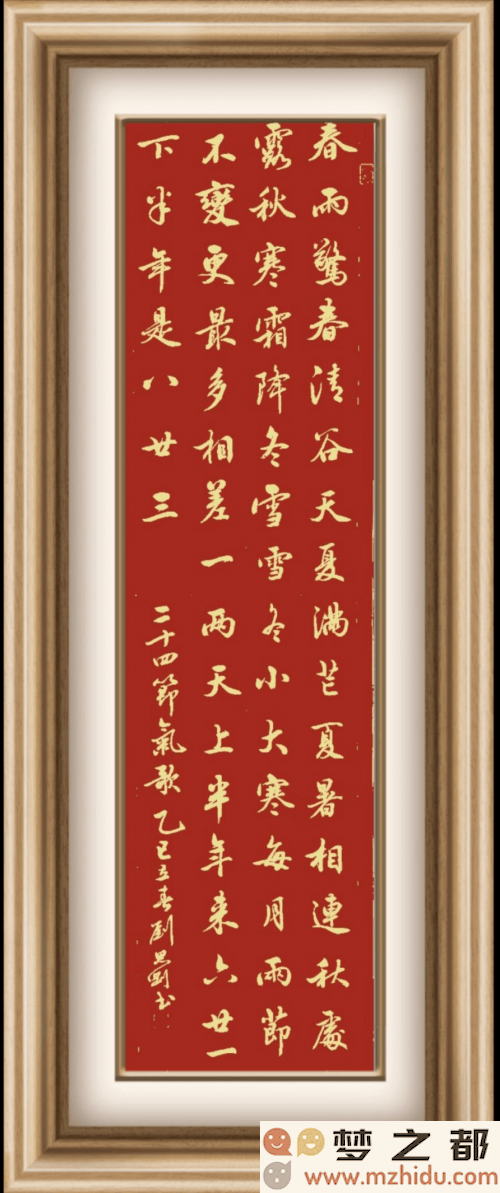 春雨驚春清谷天夏滿芒夏暑相連秋處
露秋寒霜降冬雪雪冬小大寒每月兩節
不變更最多相差一两天上半年来六廿一
下半年是八廿三
二十四節氣歌 乙巳立春劉思
梦之都
www.mzhidu.com